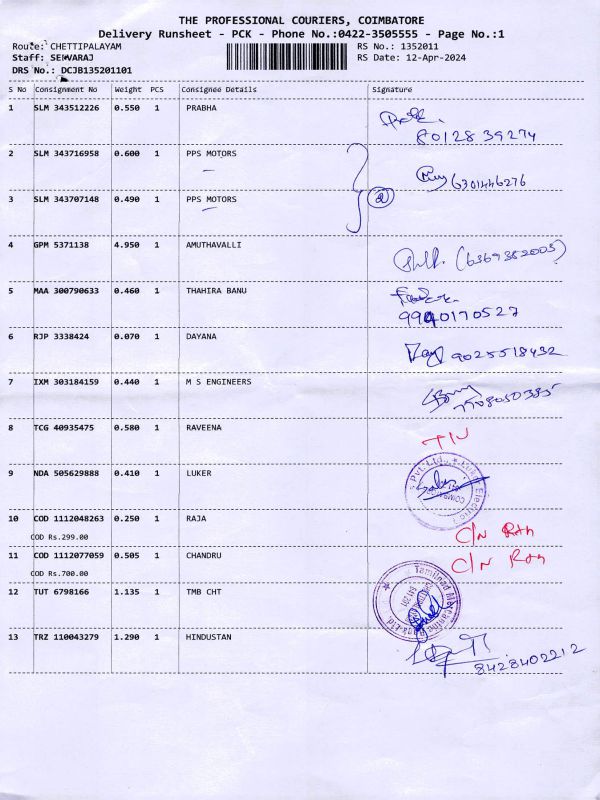 THE PROFESSIONAL COURIERS, COIMBATORE
Delivery Runsheet - PCK - Phone No.:0422-3505555 - Page No.:1
Route: CHETTIPALAYAM
RS No.: 1352011
Staff: SELVARAJ
RS Date: 12-Apr-2024
DRS No.: DCJB135201101
S No Consignment No Weight PCS Consignee Details Signature
1 SLM 343512226 0.550 1 PRABHA
8012839274
2 SLM 343716958 0.600 1 PPS MOTORS
6301446276
3 SLM 343707148 0.490 1 PPS MOTORS
2
4 GPM 5371138 4.950 1 AMUTHAVALLI
(6369382005)
5 MAA 300790633 0.460 1 THAHIRA BANU
9940170527
6 RJP 3338424 0.070 1 DAYANA
9025518432
7 IXM 303184159 0.440 1 M S ENGINEERS
8 TCG 40935475 0.580 1 RAVEENA
9 NDA 505629888 0.410 1 LUKER
Pvt. Ltd., ★ Luker Electric
10 COD 1112048263 0.250 1 RAJA C/N
COD Rs.299.00
11 COD 1112077059 0.505 1 CHANDRU C/N
COD Rs.700.00
12 TUT 6798166 1.135 1 TMB CHT
Tamilnad Mercantile Bank Ltd.
13 TRZ 110043279 1.290 1 HINDUSTAN
8428402212